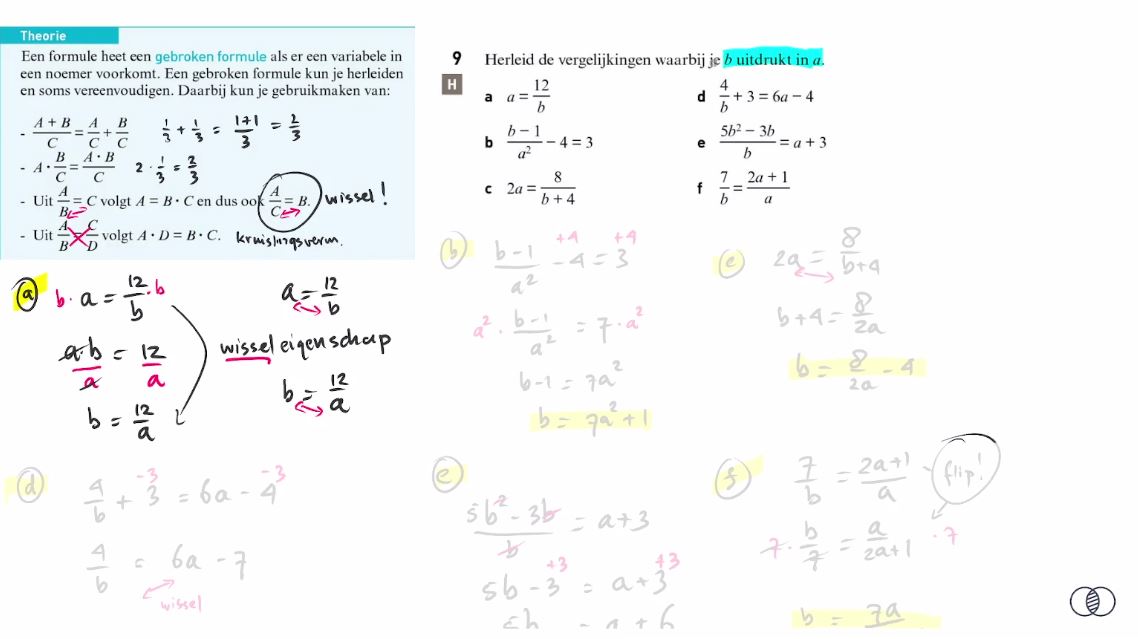 Theorie
Een formule heet een gebroken formule als er een variabele in
een noemer voorkomt. Een gebroken formule kun je herleiden
en soms vereenvoudigen. Daarbij kun je gebruikmaken van:
- (A + B)/C = A/C + B/C   1/3 + 1/3 = (1+1)/3 = 2/3
- A · B/C = (A · B)/C   2 · 1/3 = 2/3
- Uit A/B = C volgt A = B · C en dus ook A/C = B. wissel!
- Uit A/B = C/D volgt A · D = B · C. kruislingsverm.
9 Herleid de vergelijkingen waarbij je b uitdrukt in a.
H
a a = 12/b
b (b − 1)/a² − 4 = 3
c 2a = 8/(b + 4)
d 4/b + 3 = 6a − 4
e (5b² − 3b)/b = a + 3
f 7/b = (2a + 1)/a
a b · a = 12/b · b
a·b/a = 12/a
b = 12/a
a = 12/b
wissel eigenschap
b = 12/a
b +4 +4
(b−1)/a² − 4 = 3
a² · (b−1)/a² = 7 · a²
b−1 = 7a²
b = 7a² + 1
c 2a = 8/(b+4)
b+4 = 8/2a
b = 8/2a − 4
d −3 −3
4/b + 3 = 6a − 4
4/b = 6a − 7
wissel
e
(5b² − 3b)/b = a + 3
+3 +3
5b − 3 = a + 3
5b = a + 6
f 7/b = (2a+1)/a flip!
7 · b/7 = a/(2a+1) · 7
b = 7a